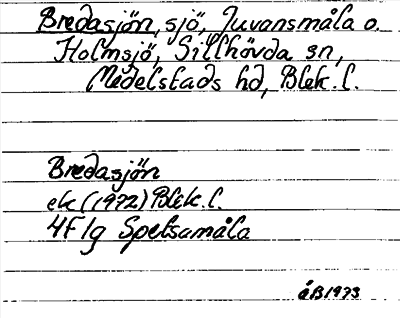 Bredasjön, sjö, Juvansmåla o.
Holmsjö, Sillhövda sn,
Medelstads hd, Blek. l.
Bredasjön
ek (1972) Blek. l.
4F1g Spetsamåla
åB1973